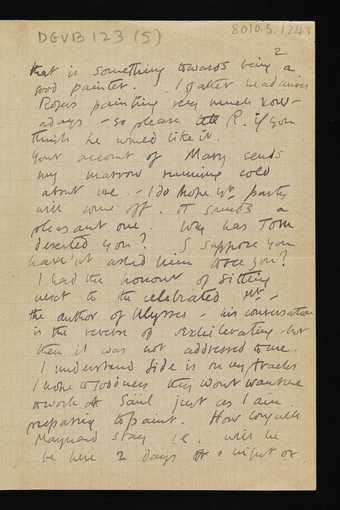 DGVB 123 (5)
8010.5.1243
2
that is something towards being a
good painter. I gather he admires
Rogers painting very much now-
adays – so please tell R. if you
think he would like it.
Your account of Mary sends
my marrow running cold
about me. – I do hope yr. party
will come off. It sounds a
pleasant one. Why has Tom
deserted you? I suppose you
haven't asked him to see you?
I had the honour of sitting
next to the celebrated Mr. –
the author of Ulysses – his conversation
is the reverse of exhilarating but
then it was not addressed to me.
I understand Side is on my tracks
I hope to goodness they wont want me
to work at Saül just as I am
preparing to paint. How long will
Maynard stay i.e. will he
be here 2 days & a night or